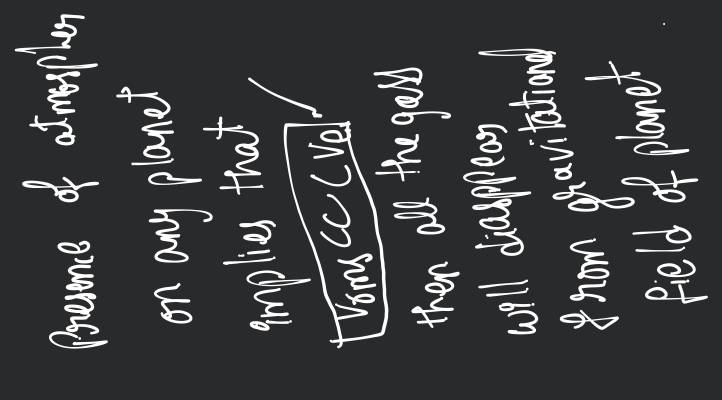 Presence of atmospher
on any planet
implies that
Vrms <<< Ve
then all the gass
will disappear
from gravitational
field of planet